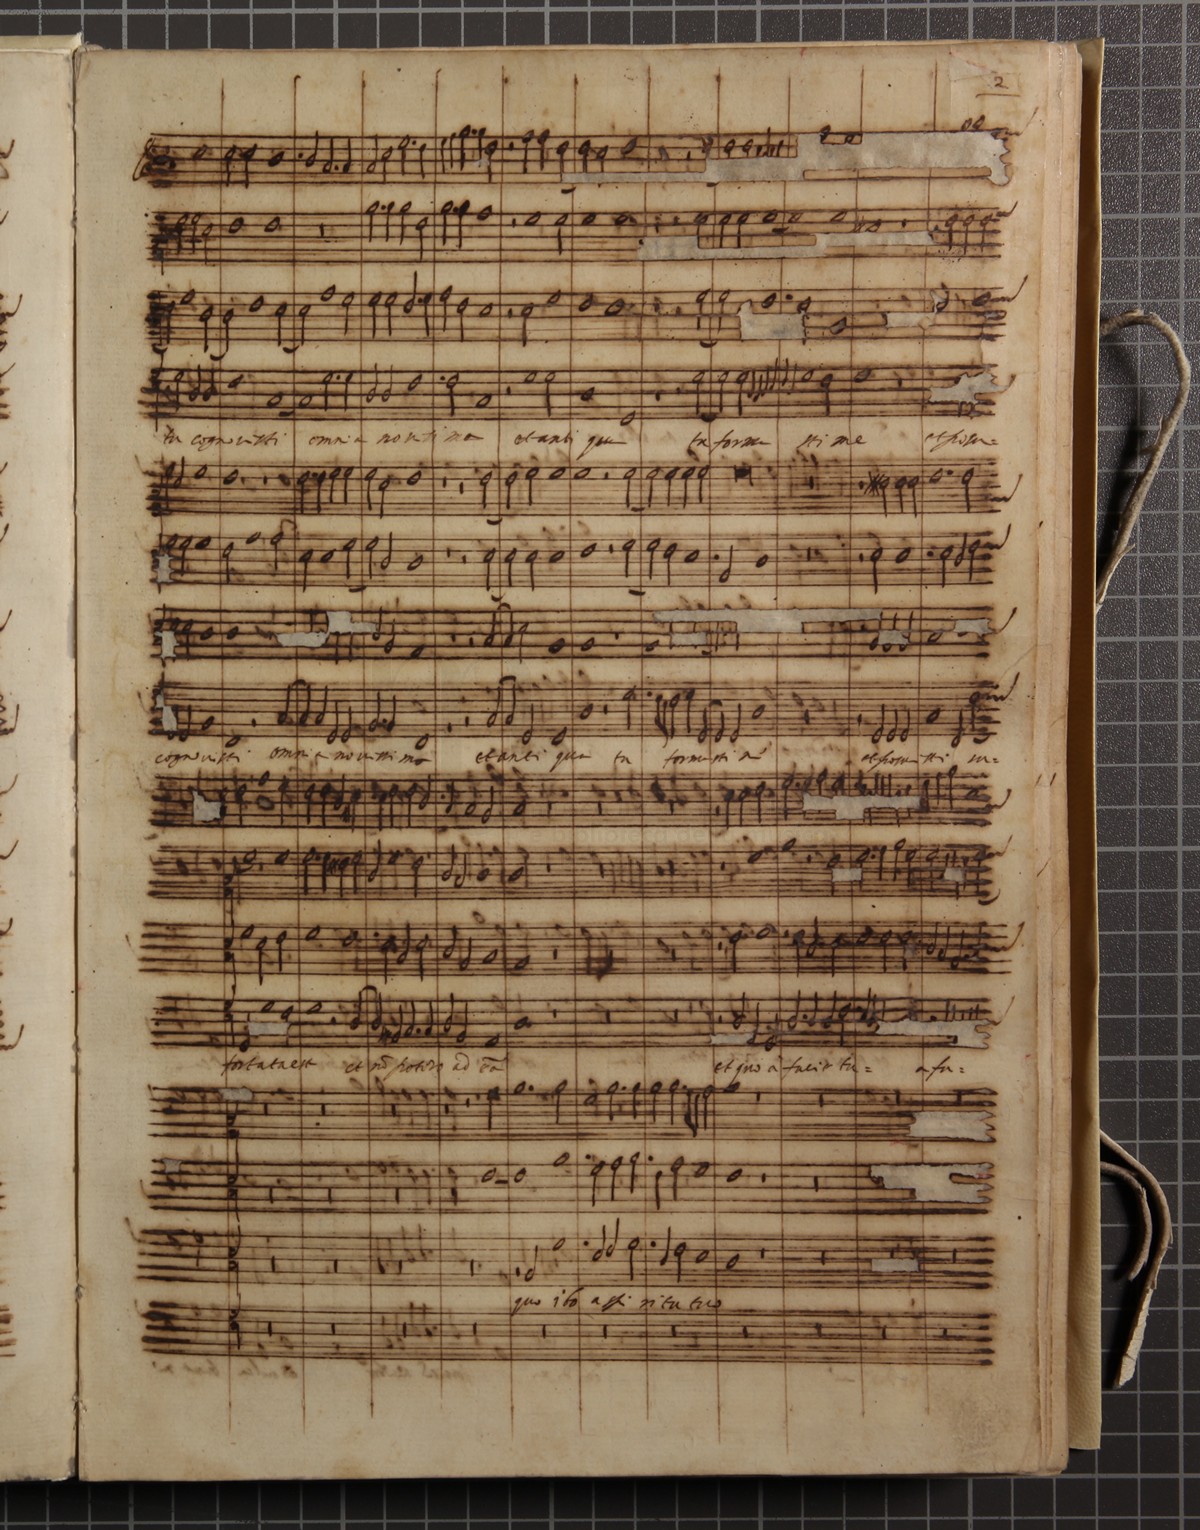 2
tu cognovisti omnia novissima et antiqua tu formasti me et posu=
cognovisti omnia novissima et antiqua tu formasti me et posuisti su=
fortata est et nō potero ad eā et quo à facie tu= a fu=
quo ibo a spiritu tuo